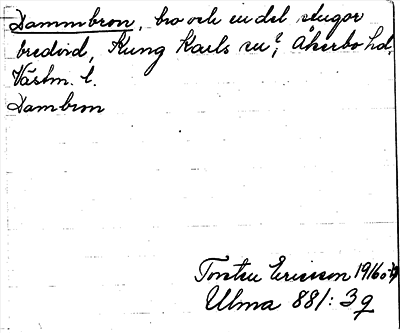 Dammbron, bro och en del stugor
bredvid, Kung Karls sn, Åkerbo hd.
Västm. l.
Dambron
Torsten Ericsson 1916 o 19
Ulma 881: 3 q